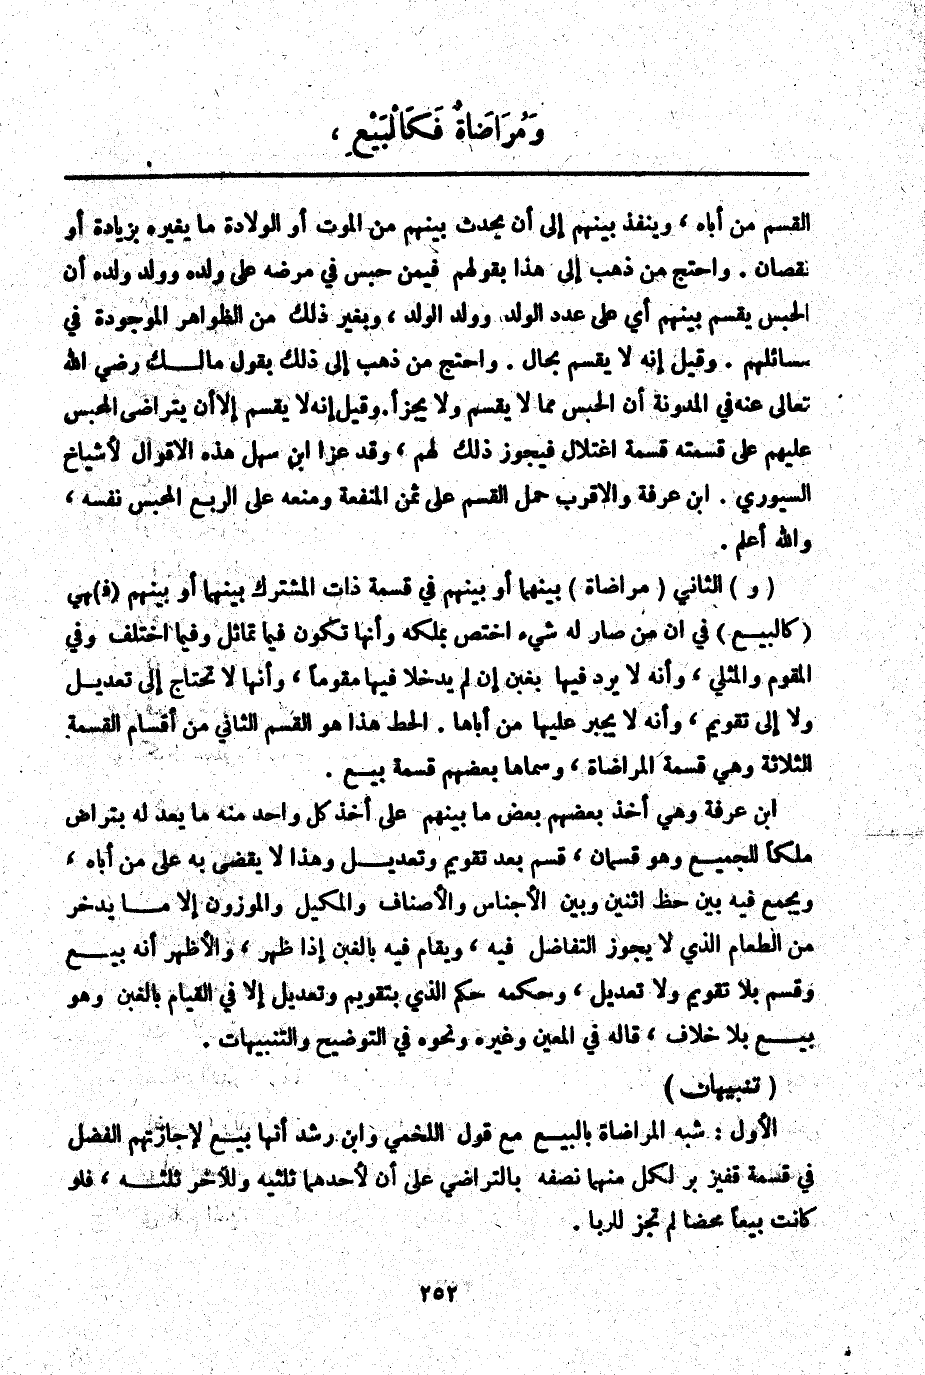 وَمُرَاضَاةٌ فَكَالْبَيْعِ ،
القسم من أباه ، وينفذ بينهم إلى أن يحدث بينهم من الموت أو الولادة ما يغيره بزيادة أو
نقصان . واحتج من ذهب إلى هذا بقولهم فيمن حبس في مرضه على ولده وولد ولده أن
الحبس يقسم بينهم أي على عدد الولد وولد الولد ، وبغير ذلك من الظواهر الموجودة في
مسائلهم . وقيل إنه لا يقسم بحال . واحتج من ذهب إلى ذلك بقول مالك رضي الله
تعالى عنه في المدونة أن الحبس مما لا يقسم ولا يجزأ . وقيل إنه لا يقسم إلا أن يتراضى المحبس
عليهم على قسمته قسمة اغتلال فيجوز ذلك لهم ، وقد عزا ابن سهل هذه الاقوال لأشياخ
السيوري . ابن عرفة والاقرب حمل القسم على ثمن المنفعة ومنعه على الربع المحبس نفسه ،
والله أعلم .
( و ) الثاني ( مراضاة ) بينهما أو بينهم في قسمة ذات المشترك بينهما أو بينهم (ف)هي
( كالبيع ) في ان من صار له شيء اختص بملكه وأنها تكون فيما تماثل وفيما اختلف وفي
المقوم والمثلي ، وأنه لا يرد فيها بغبن إن لم يدخلا فيها مقوماً ، وأنها لا تحتاج إلى تعديل
ولا إلى تقويم ، وأنه لا يجبر عليها من أباها . الحط هذا هو القسم الثاني من أقسام القسمة
الثلاثة وهي قسمة المراضاة ، وسماها بعضهم قسمة بيع .
ابن عرفة وهي أخذ بعضهم بعض ما بينهم على أخذ كل واحد منه ما يعد له بتراض
ملكاً للجميع وهو قسمان ، قسم بعد تقويم وتعديل وهذا لا يقضى به على من أباه ،
ويجمع فيه بين حظ اثنين وبين الأجناس والأصناف والمكيل والموزون إلا ما يدخر
من الطعام الذي لا يجوز التفاضل فيه ، ويقام فيه بالغبن إذا ظهر ، والأظهر أنه بيع
وقسم بلا تقويم ولا تعديل ، وحكمه حكم الذي بتقويم وتعديل إلا في القيام بالغبن وهو
بيع بلا خلاف ، قاله في المعين وغيره ونحوه في التوضيح والتنبيهات .
( تنبيهات )
الأول : شبه المراضاة بالبيع مع قول اللخمي وابن رشد أنها بيع لإجازتهم الفضل
في قسمة قفيز بر لكل منهما نصفه بالتراضي على أن لأحدهما ثلثيه وللآخر ثلثه ، فلو
كانت بيعاً محضا لم تجز للربا .
٢٥٢